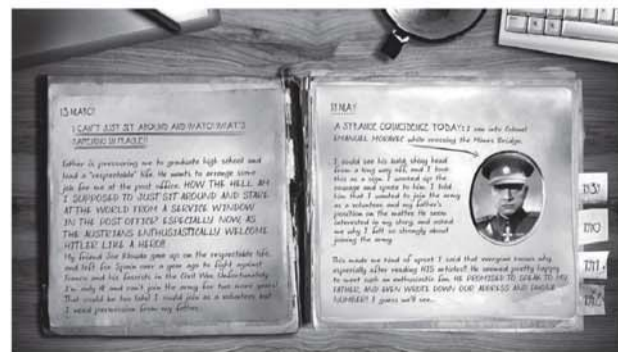 15 MARCH
I CAN'T JUST SIT AROUND AND WATCH WHAT'S
HAPPENING IN PRAGUE!!
Father is pressuring me to graduate high school and
lead a "respectable" life. He wants to arrange some
job for me at the post office. HOW THE HELL AM
I SUPPOSED TO JUST SIT AROUND AND STARE
AT THE WORLD FROM A SERVICE WINDOW
IN THE POST OFFICE? ESPECIALLY NOW, AS
THE AUSTRIANS ENTHUSIASTICALLY WELCOME
HITLER LIKE A HERO!
My friend Joe Rhoade gave up on the respectable life
and left for Spain over a year ago to fight against
Franco and his fascists in the Civil War. Unfortunately
I'm only 18 and can't join the army for two more years!
That could be too late! I could join as a volunteer, but
I need permission from my father.
11 MAY
A STRANGE COINCIDENCE TODAY: I ran into Colonel
EMANUEL MORAVEC while crossing the Mánes Bridge.
I could see his bald, shiny head
from a long way off, and I took
this as a sign. I worked up the
courage and spoke to him. I told
him that I wanted to join the army
as a volunteer and my father's
position on the matter. He seemed
interested in my story, and asked
me why I felt so strongly about
joining the army.
This made me kind of upset. I said that everyone knows why
especially after reading HIS articles!! He seemed pretty happy
to meet such an enthusiastic fan. HE PROMISED TO SPEAK TO MY
FATHER, AND EVEN WROTE DOWN OUR ADDRESS AND PHONE
NUMBER!! I guess we'll see...